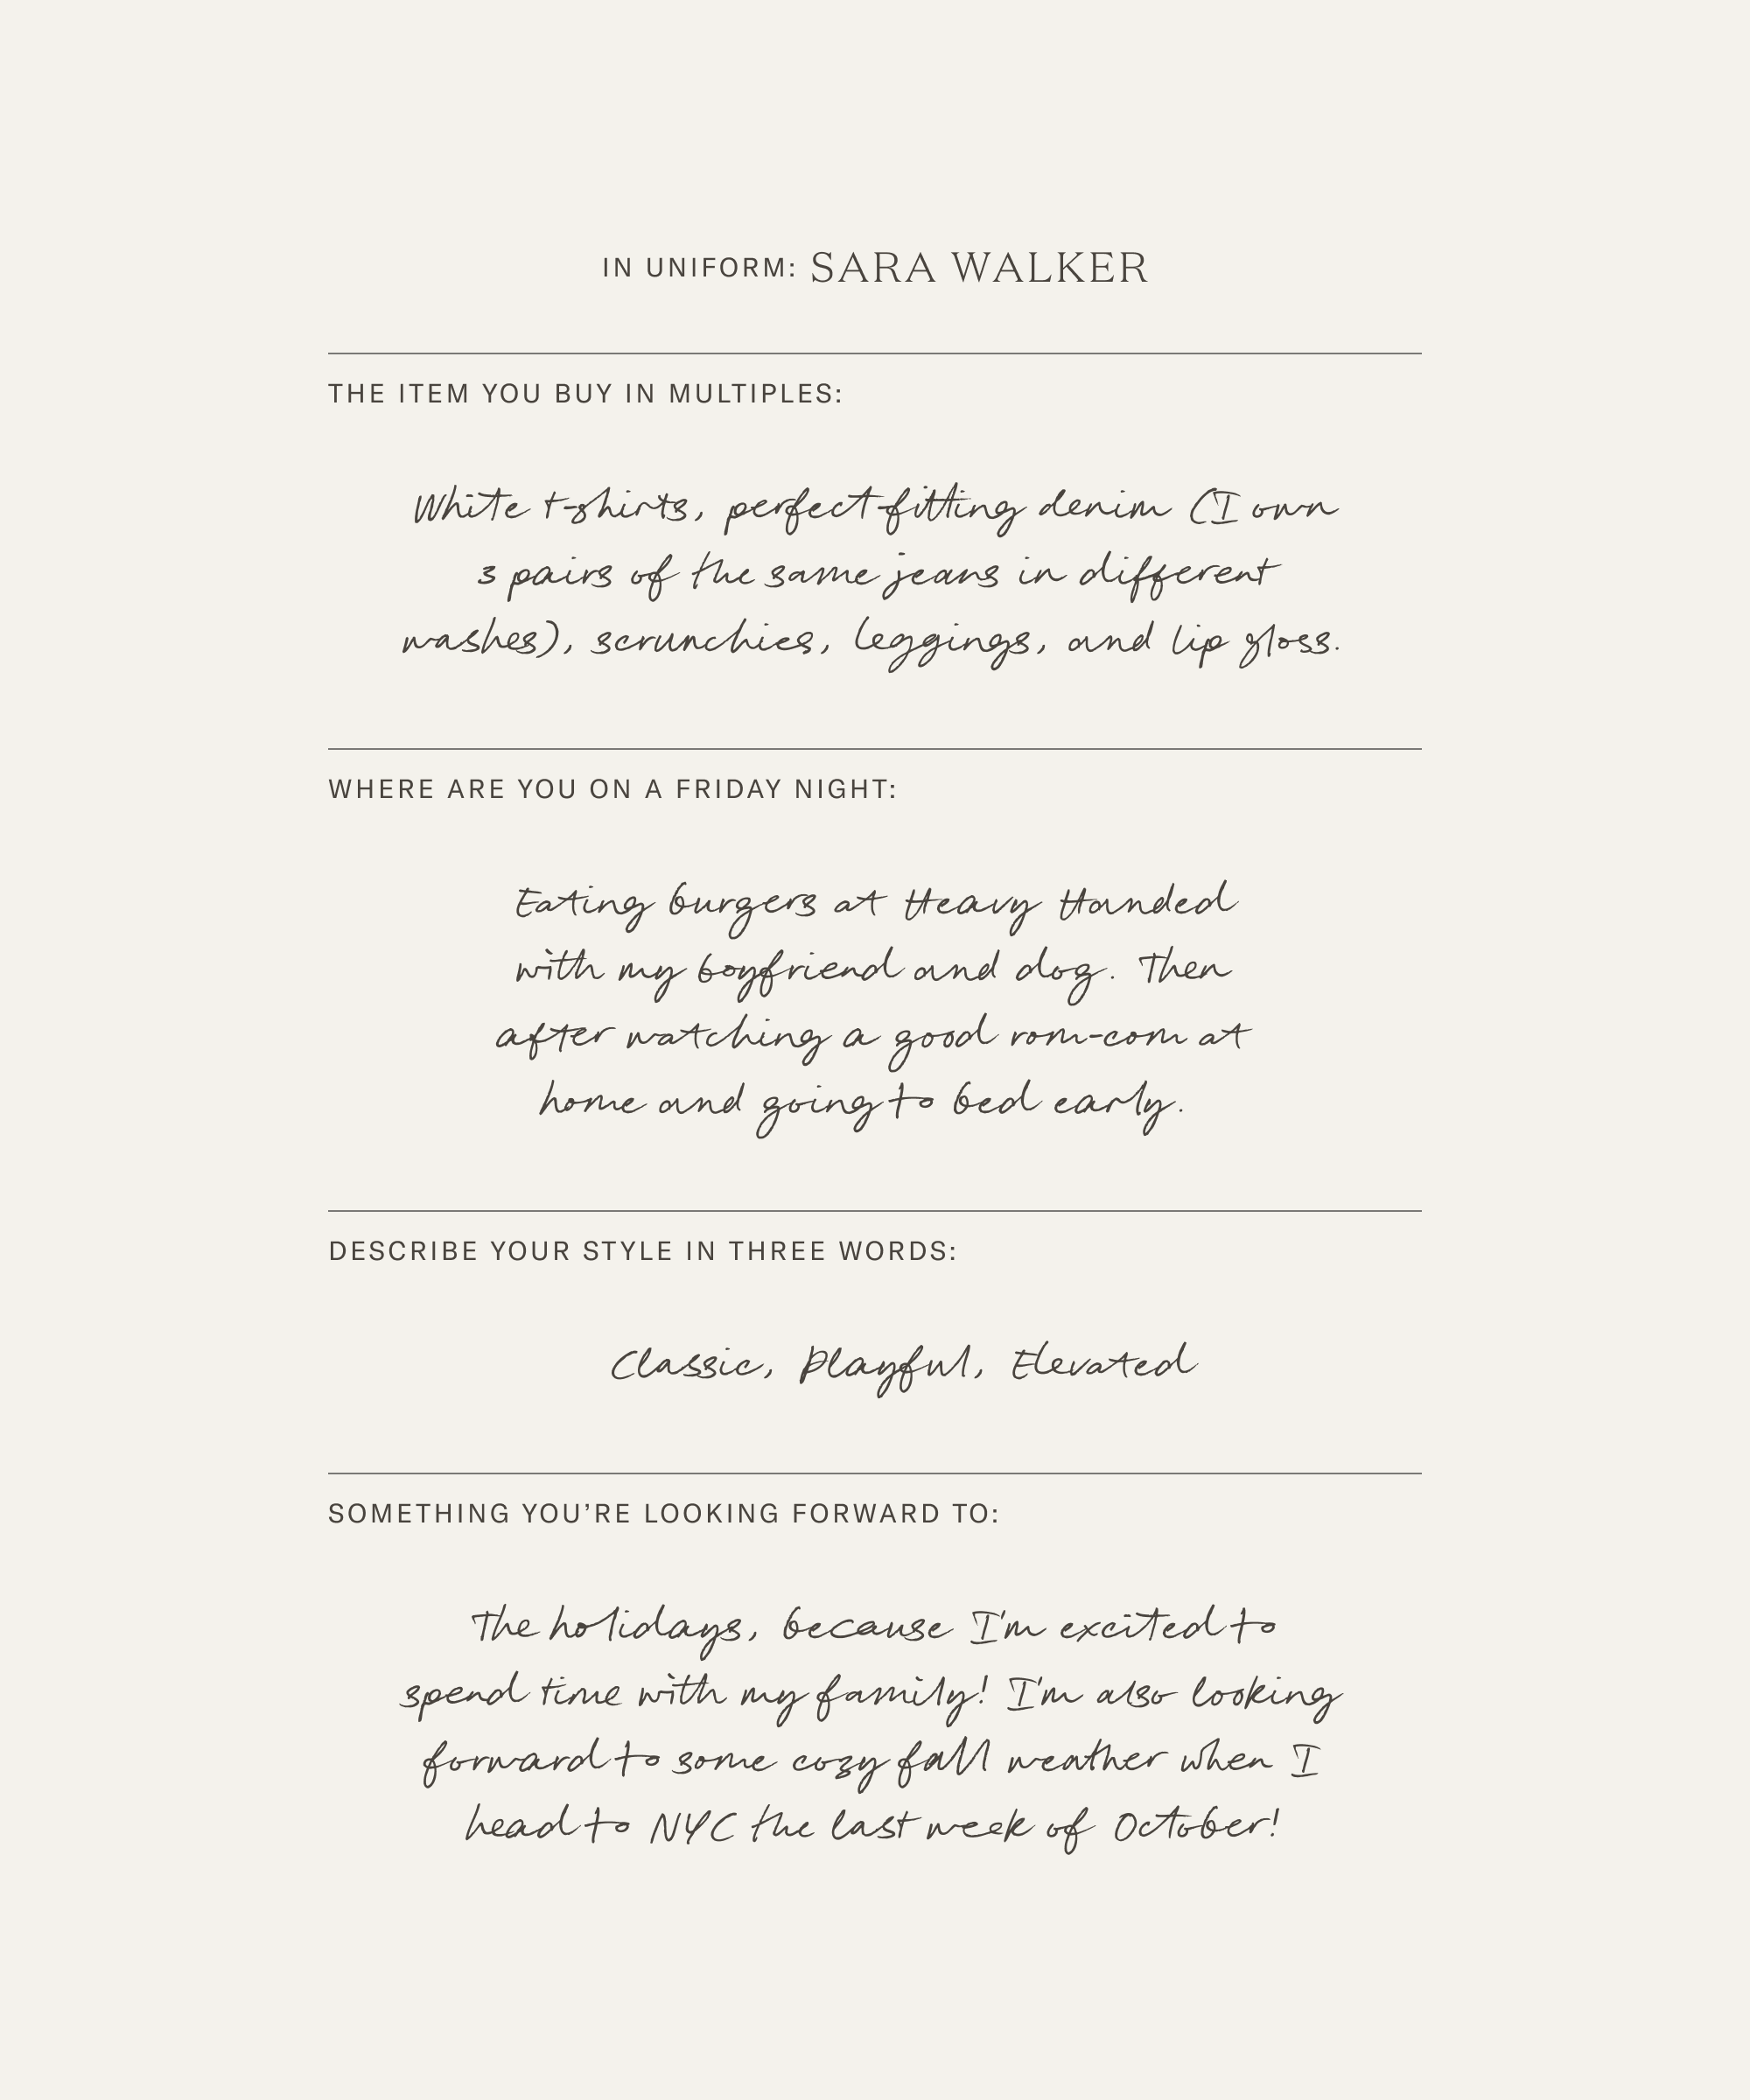 IN UNIFORM: SARA WALKER
THE ITEM YOU BUY IN MULTIPLES:
White t-shirts, perfect-fitting denim (I own
3 pairs of the same jeans in different
washes), scrunchies, leggings, and lip gloss.
WHERE ARE YOU ON A FRIDAY NIGHT:
Eating burgers at Heavy Handed
with my boyfriend and dog. Then
after watching a good rom-com at
home and going to bed early.
DESCRIBE YOUR STYLE IN THREE WORDS:
Classic, Playful, Elevated
SOMETHING YOU’RE LOOKING FORWARD TO:
The holidays, because I'm excited to
spend time with my family! I'm also looking
forward to some cozy fall weather when I
head to NYC the last week of October!